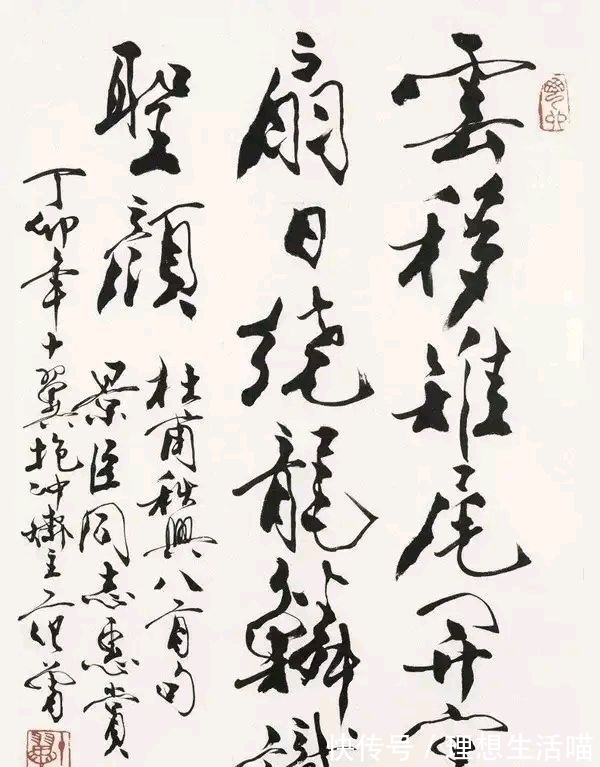 雲移雉尾開宮
扇日繞龍鱗識
聖顏
杜甫秋興八首句
景臣同志惠賞
丁卯年十翼抱冲齋主范曾
快传号/理想生活喵